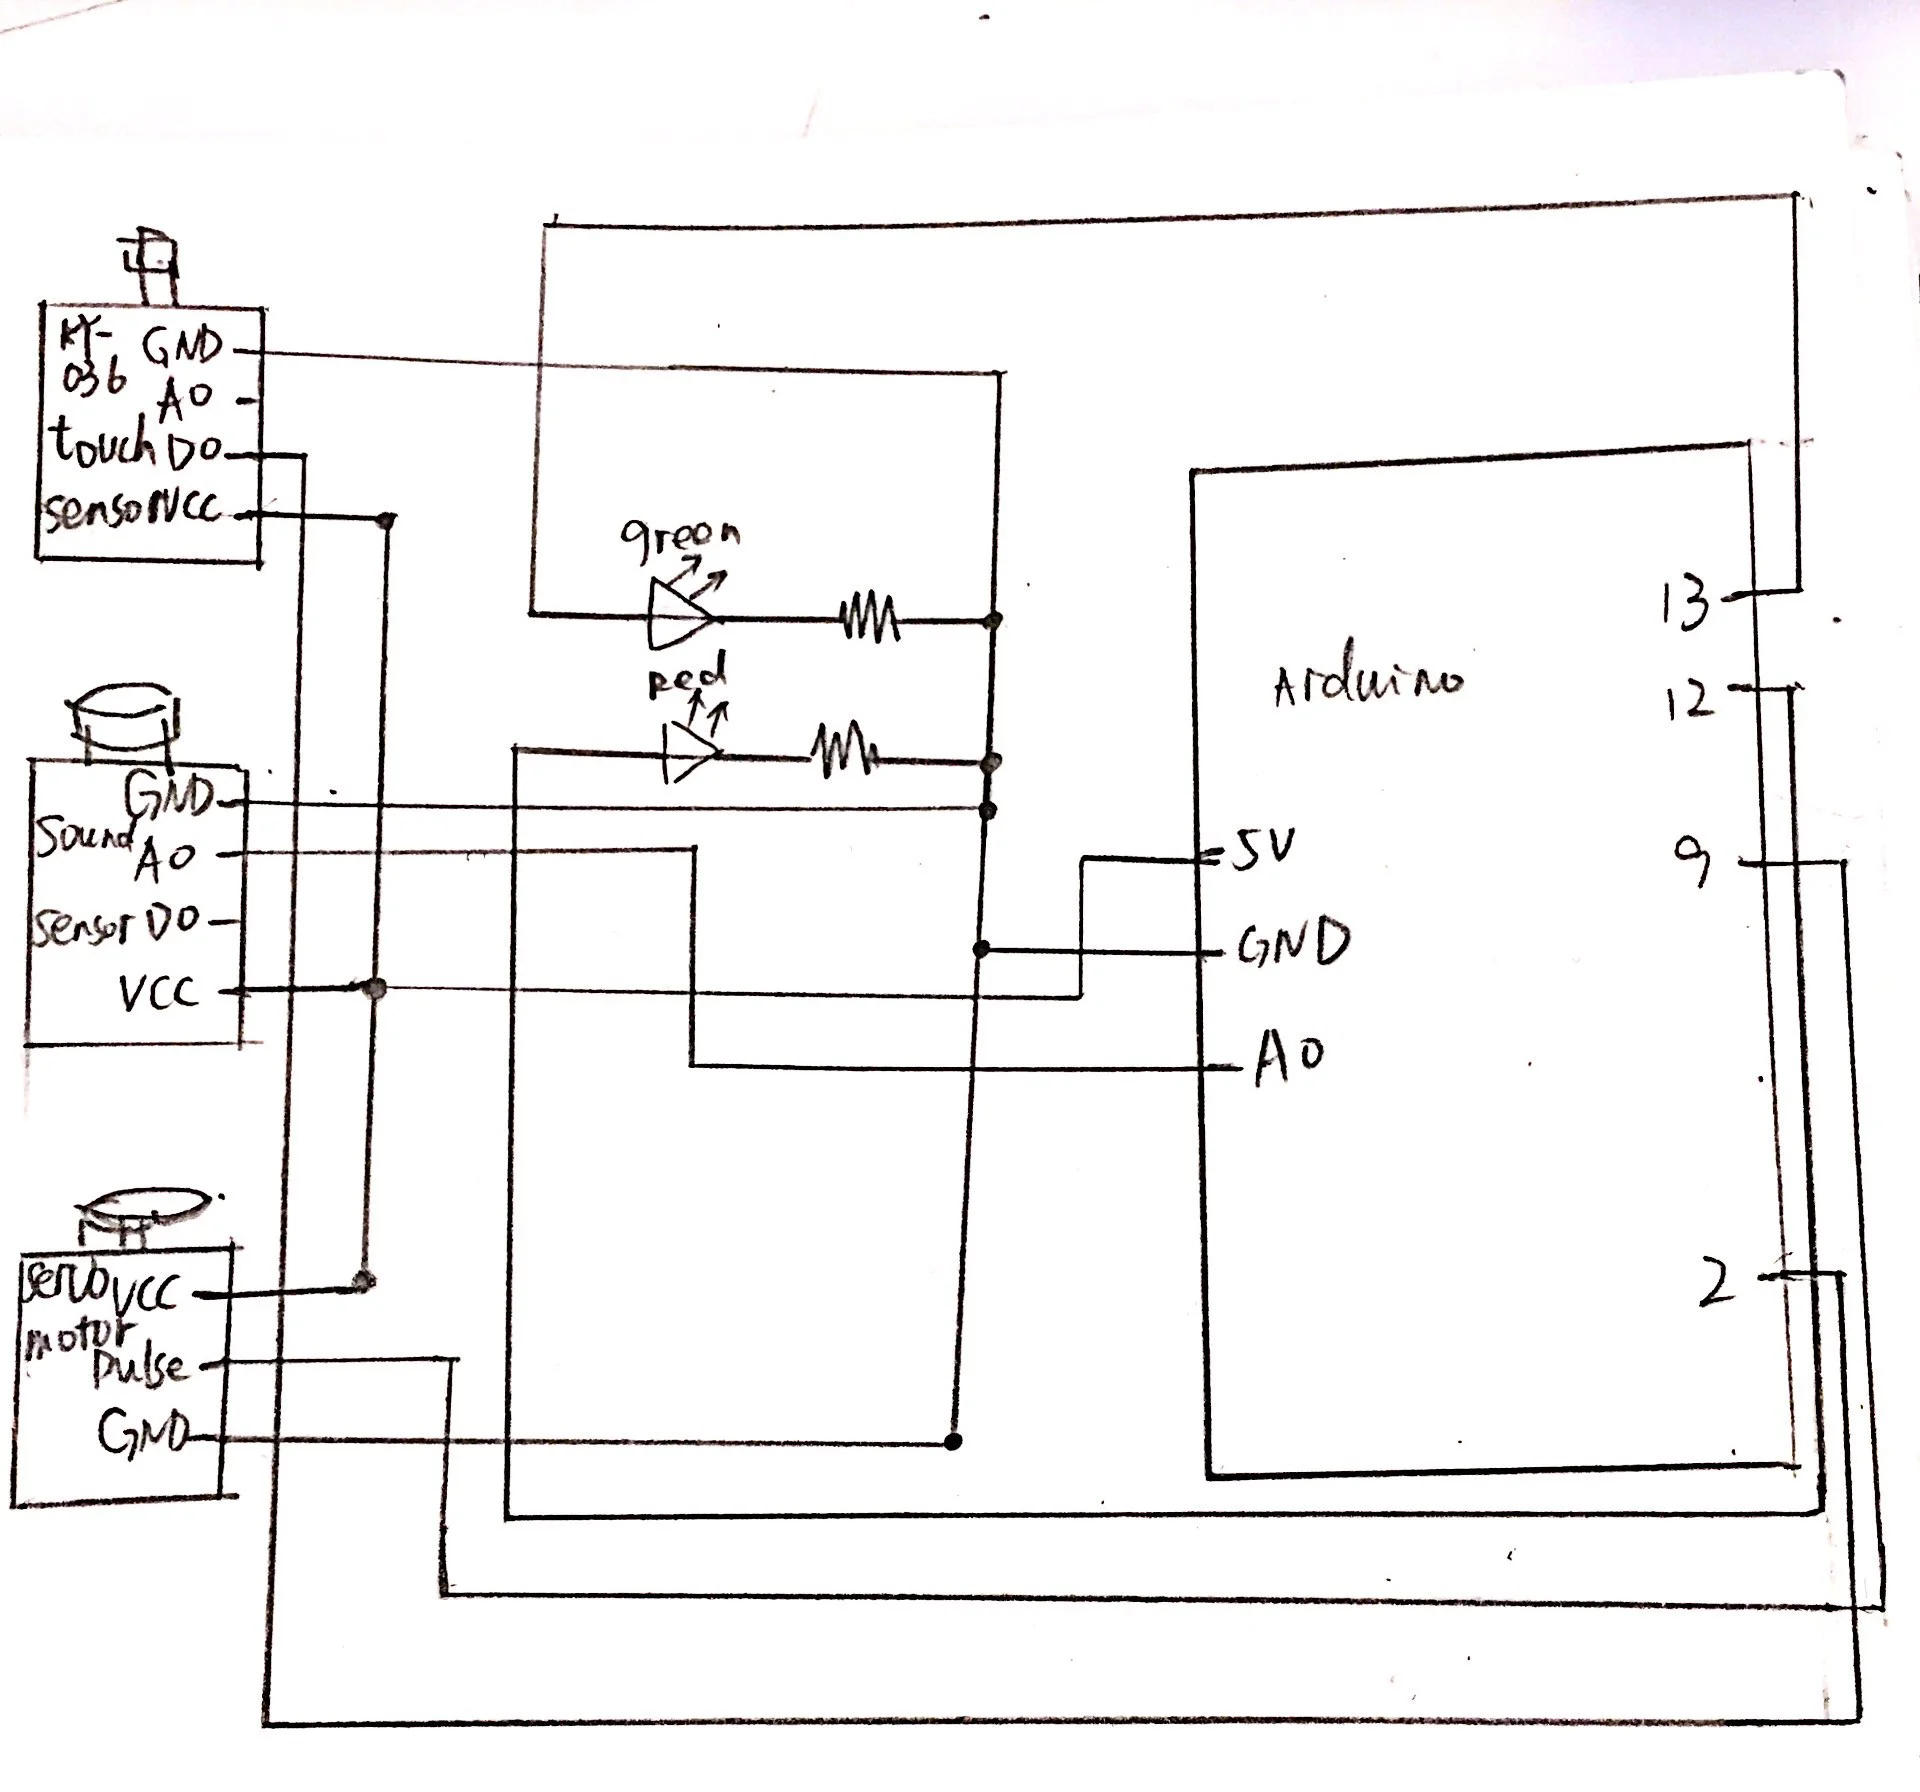 KY-
036
GND
A0
touch D0
sensor VCC
green
Red
GND
Sound
A0
sensor D0
VCC
servo VCC
motor
pulse
GND
Arduino
5V
GND
A0
13
12
9
2